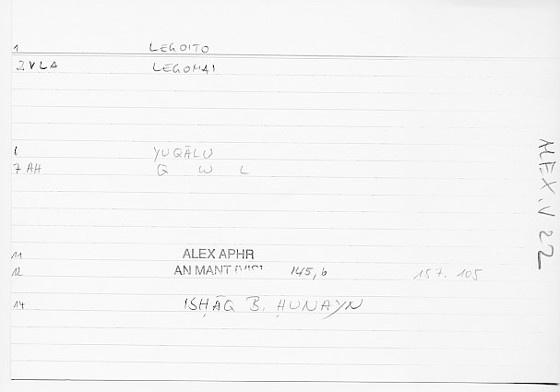 1 LEGOITO
2 VLA LEGOMAI
1 YUQĀLU
7 AH Q W L
11 ALEX APHR
12 AN MANT 145,6 157. 105
14 ISḤĀQ B. ḤUNAYN
ALEX.V 22